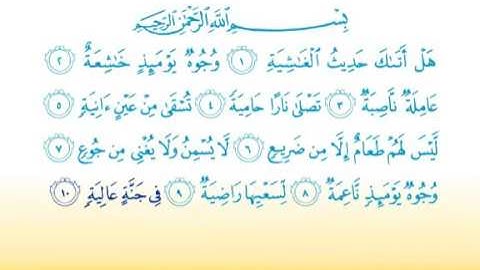 بِسْمِ ٱللَّهِ ٱلرَّحْمَٰنِ ٱلرَّحِيمِ
هَلْ أَتَىٰكَ حَدِيثُ ٱلْغَٰشِيَةِ ١ وُجُوهٌ يَوْمَئِذٍ خَٰشِعَةٌ ٢
عَامِلَةٌ نَّاصِبَةٌ ٣ تَصْلَىٰ نَارًا حَامِيَةً ٤ تُسْقَىٰ مِنْ عَيْنٍ ءَانِيَةٍ ٥
لَّيْسَ لَهُمْ طَعَامٌ إِلَّا مِن ضَرِيعٍ ٦ لَّا يُسْمِنُ وَلَا يُغْنِى مِن جُوعٍ ٧
وُجُوهٌ يَوْمَئِذٍ نَّاعِمَةٌ ٨ لِّسَعْيِهَا رَاضِيَةٌ ٩ فِى جَنَّةٍ عَالِيَةٍ ١٠